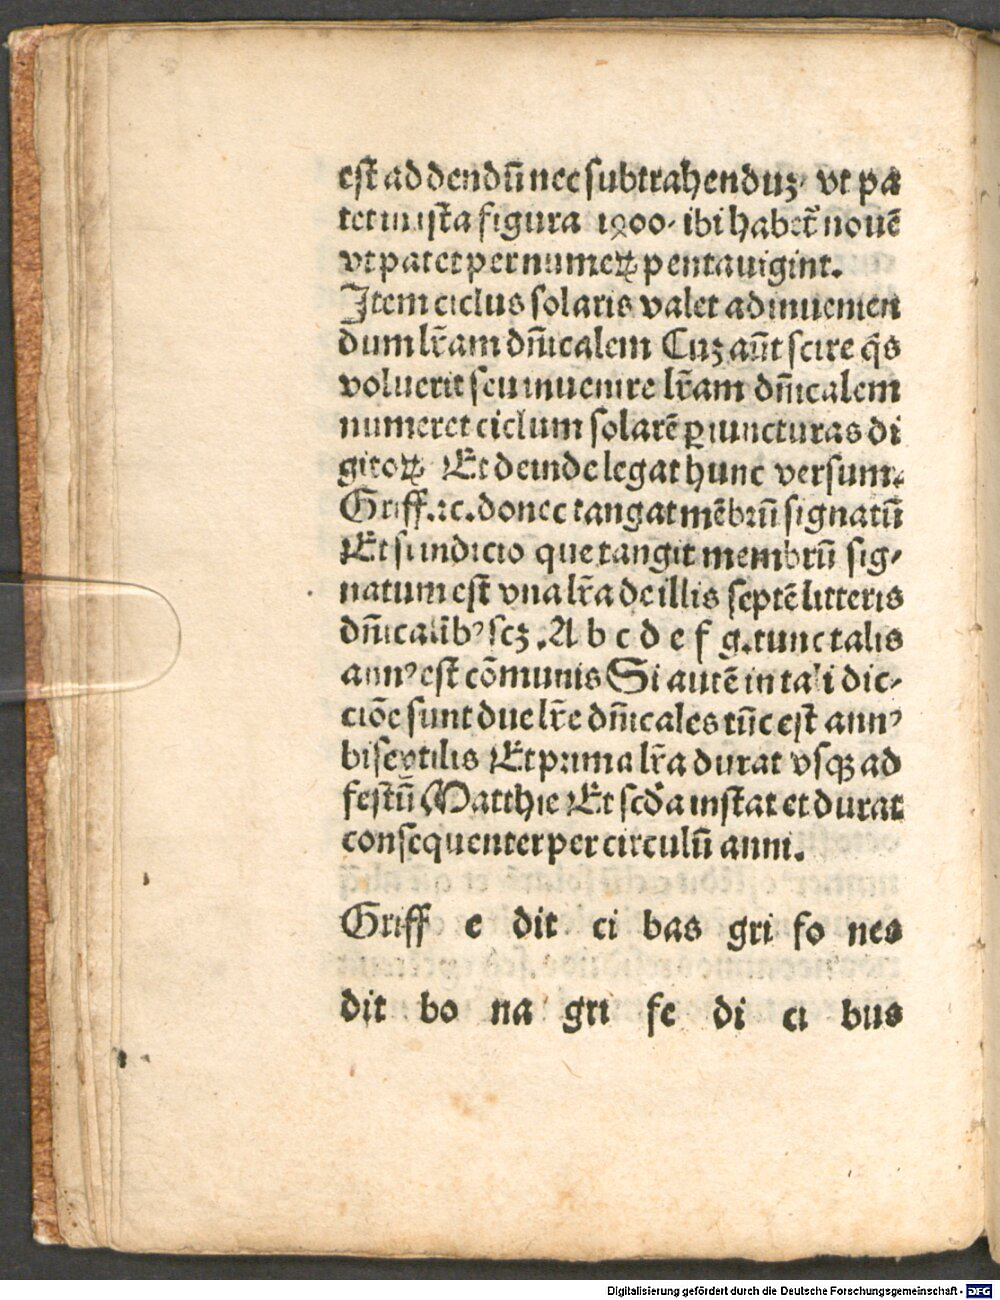 est addendū nec subtrahenduꝫ· vt pa
tet in ista figura 1900· ibi habet̄ nouē
vt patet per numeꝝ pentauigint.
Item ciclus solaris valet ad inuenien
dum lr̄am dn̄icalem Cuꝫ aūt scire q̄s
voluerit seu inuenire lr̄am dn̄icalem
numeret ciclum solarē ꝑ iuncturas di
gitoꝝ Et deinde legat hunc versum.
Griff.⁊c. donec tangat mēbrū signatū
Et si in dictio que tangit membrū sig⸗
natum est vna lr̄a de illis septē litteris
dn̄icalibꝰ scꝫ .A b c d e f g. tunc talis
annꝰ est cōmunis Si autē in tali dic⸗
ciōe sunt due lr̄e dn̄icales tūc est annꝰ
bisextilis Et prima lr̄a durat vsqꝫ ad
festū Matthie Et scd̄a instat et durat
consequenter per circulū anni.
Griff e dit ci bas gri fo nes
dit bo na gri fe di ci bus
Digitalisierung gefördert durch die Deutsche Forschungsgemeinschaft - DFG